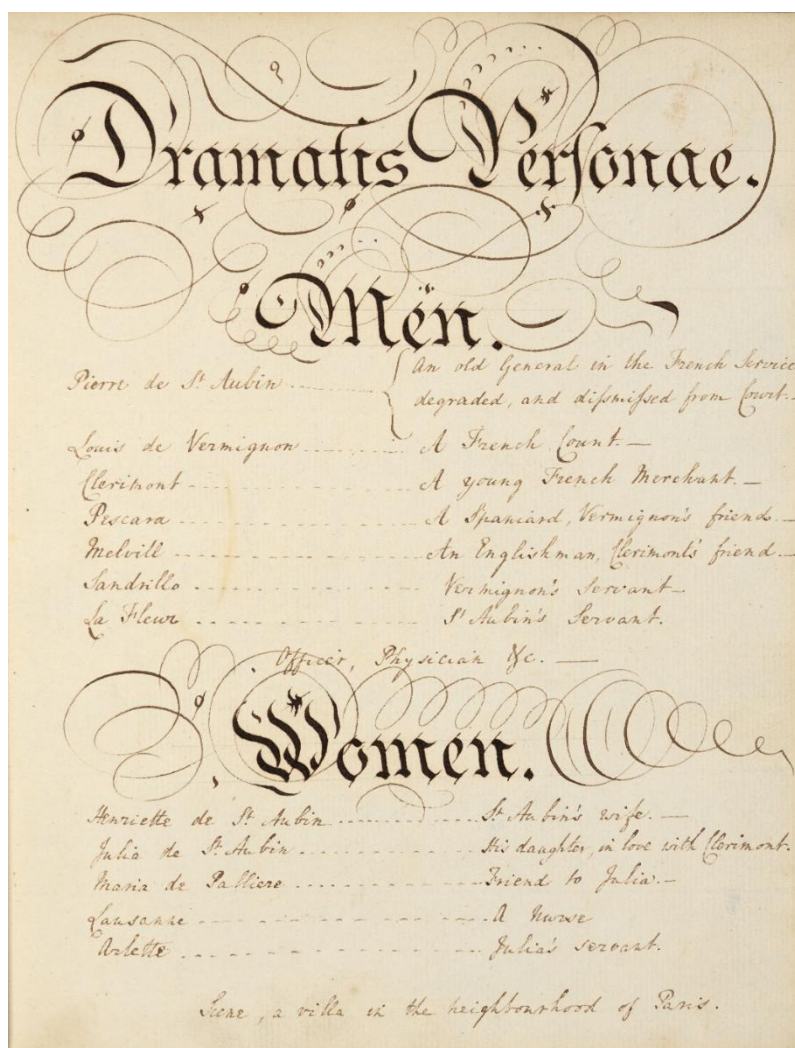 Dramatis Perſonae.
Men.
Pierre de St Aubin ... { An old General in the French Service
degraded, and diſsmiſsed from Court.—
Louis de Vermignon ... A French Count.—
Clerimont ... A young French Merchant.—
Pescara ... A Spaniard, Vermignon's friend.—
Melvile ... An Englishman, Clerimont's friend.—
Sandrillo ... Vermignon's Servant—
La Fleur ... St Aubin's Servant.
Officer, Physician &c.—
Women.
Henriette de St Aubin ... St Aubin's wife.—
Julia de St Aubin ... His daughter, in love with Clerimont.
Maria de Palliere ... Friend to Julia.—
Lausanne ... A Nurse
Arlette ... Julia's servant.
Scene, a villa in the neighbourhood of Paris.